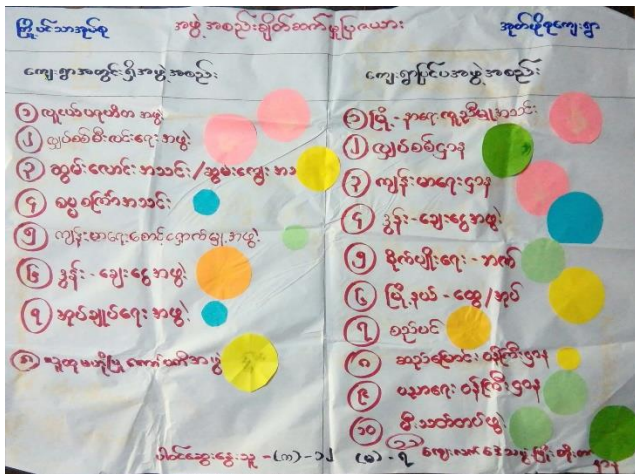 ကြို့ပင်သာအုပ်စု
အဖွဲ့အစည်းချိတ်ဆက်မှုပြဇယား
အုတ်ဖိုစုကျေးရွာ
ကျေးရွာအတွင်းရှိအဖွဲ့အစည်း
၁ လူငယ်ပရဟိတ အဖွဲ့
၂ လျှပ်စစ်မီးလင်းရေးအဖွဲ့
၃ ဆွမ်းလောင်းအသင်း/ဆွမ်းကျွေး
၄ ဓမ္မစကြာအသင်း
၅ ကျန်းမာရေးစောင့်ရှောက်မှုအဖွဲ့
၆ ဒွန်း-ချေးငွေအဖွဲ့
၇ အုပ်ချုပ်ရေးအဖွဲ့
၈
ကျေးရွာပြင်ပအဖွဲ့အစည်း
၁ မြို့-နာရေးကူညီမှုအသင်း
၂ လျှပ်စစ်ဌာန
၃ ကျန်းမာရေးဌာန
၄ ဒွန်း-ချေးငွေအဖွဲ့
၅ စိုက်ပျိုးရေး-ဘဏ်
၆ မြို့နယ်-ထွေ/အုပ်
၇ စည်ပင်
၈ ဆည်မြောင်းဝန်ကြီးဌာန
၉ ပညာရေးဝန်ကြီးဌာန
၁၀ မီးသတ်တပ်ဖွဲ့
၁၁ ကျေးလက်ဒေသဖွံ့ဖြိုးတိုးတ
ပါဝင်ဆွေးနွေးသူ-(ကျ)-၁၂ (မ)-၇